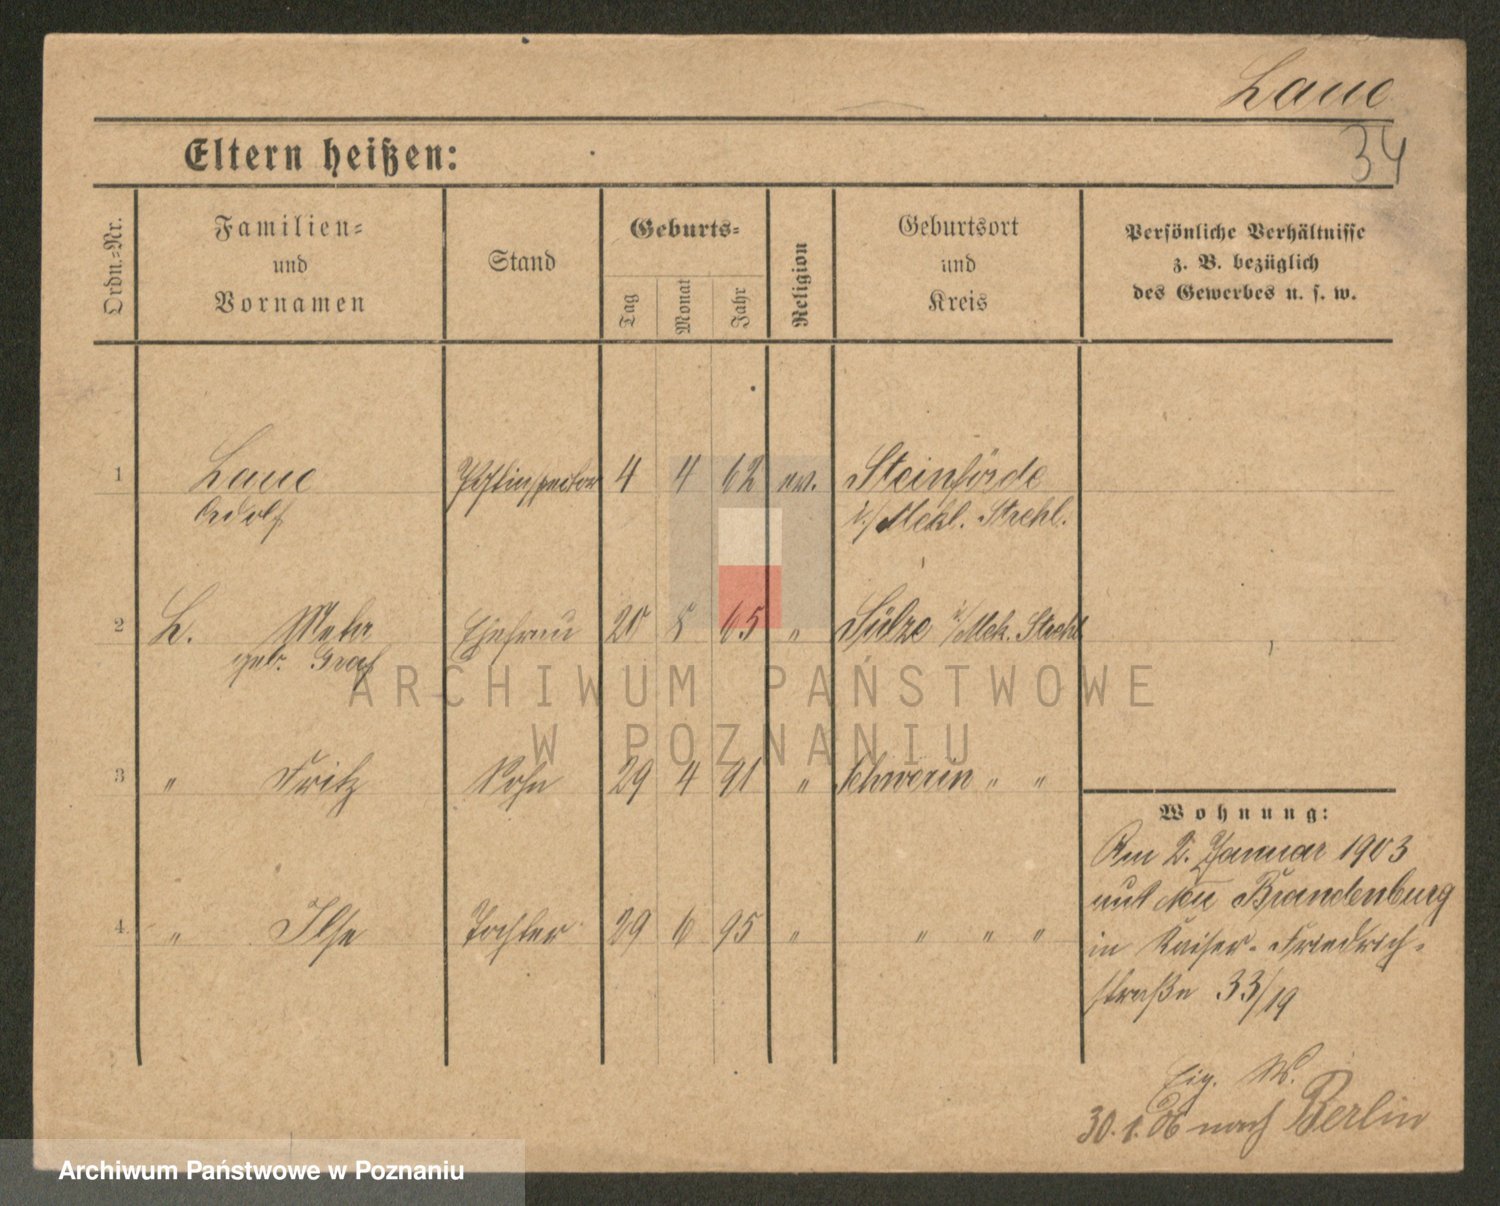 Laue
34
Eltern heißen:
Ordn.-Nr.
Familien-
und
Vornamen
Stand
Geburts-
Tag
Monat
Jahr
Religion
Geburtsort
und
Kreis
Persönliche Verhältnisse
z. B. bezüglich
des Gewerbes u. s. w.
1 Laue Postinspector 4 4 62 ev. Steinförde
Adolf i./Mekl. Strehl.
2 L. Meta Ehefrau 20 8 65 " Sülze i/Mek. Strehl
geb. Graf
3 " Fritz Sohn 29 4 91 " Schwerin " "
4. " Ilse Tochter 29 6 95 " " " "
Wohnung:
Am 2. Januar 1903
aus Brandenburg
in Kaiser-Friedrich-
straße 33/19
W.
30.1.06 nach Berlin
ARCHIWUM PAŃSTWOWE
W POZNANIU
Archiwum Państwowe w Poznaniu